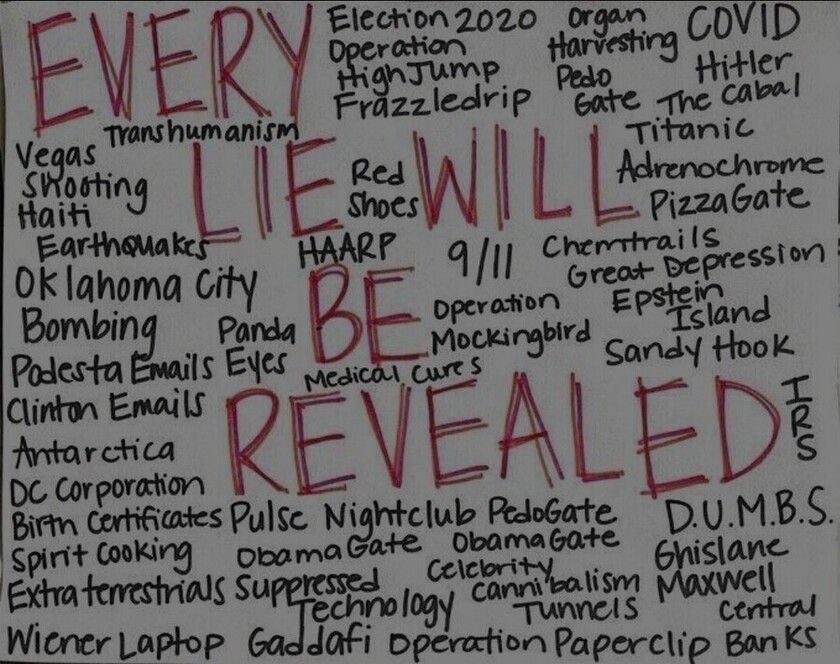 EVERY
Election 2020
Operation
HighJump
Frazzledrip
organ
Harvesting
Pedo
Gate
COVID
Hitler
The Cabal
Transhumanism
Titanic
Vegas
Shooting
Haiti
Earthquakes
LIE
Red
Shoes
WILL
Adrenochrome
PizzaGate
HAARP
9/11
Chemtrails
Great Depression
Oklahoma City
Bombing
Panda
Eyes
BE
Operation
Mockingbird
Epstein
Island
Sandy Hook
Podesta Emails
Medical Cures
Clinton Emails
REVEALED
IRS
Antarctica
DC Corporation
Birth Certificates
Pulse Nightclub
PedoGate
D.U.M.B.S.
Spirit Cooking
ObamaGate
ObamaGate
Ghislane
Maxwell
Extraterrestrials
Suppressed
Technology
Celebrity
Cannibalism
Tunnels
Central
Banks
Wiener Laptop
Gaddafi
Operation Paperclip